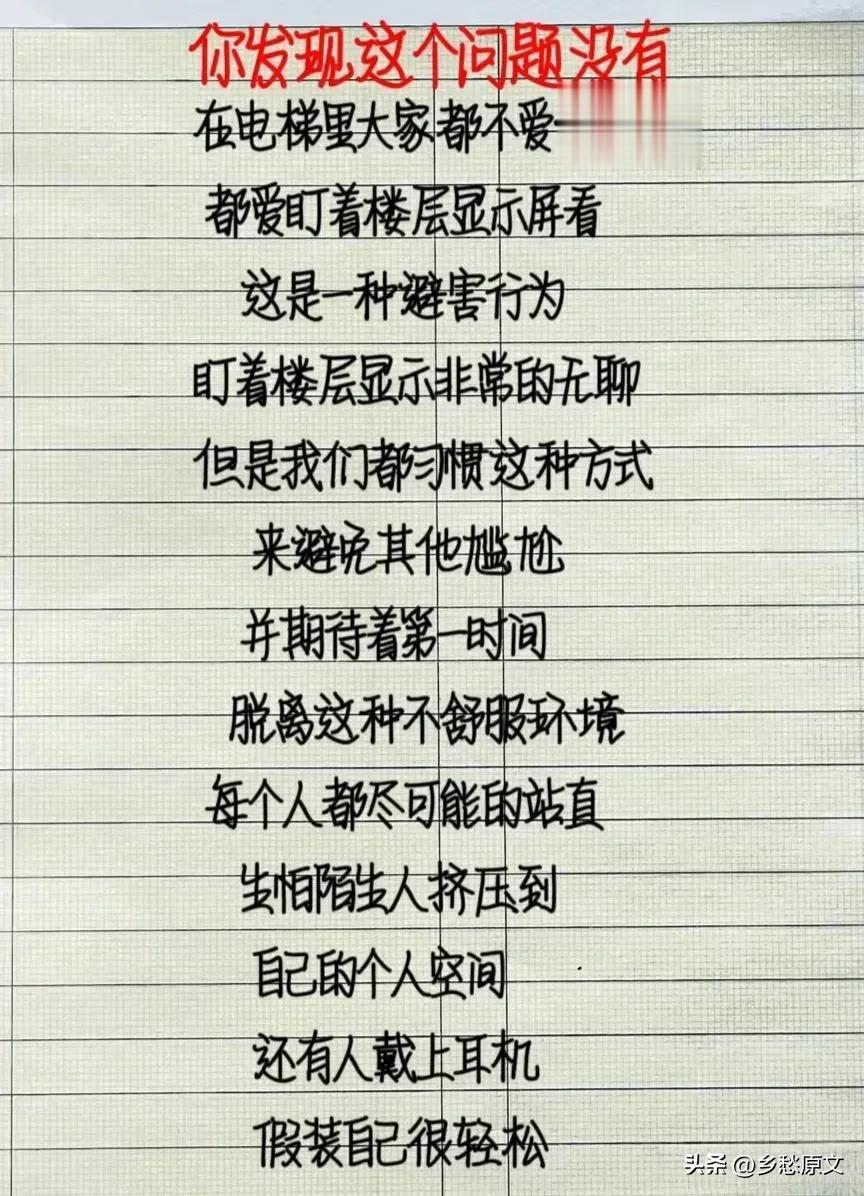 你发现这个问题没有
在电梯里大家都不爱
都爱盯着楼层显示屏看
这是一种避害行为
盯着楼层显示非常的无聊
但是我们都习惯这种方式
来避免其他尴尬
并期待着第一时间
脱离这种不舒服环境
每个人都尽可能的站直
生怕陌生人挤压到
自己的个人空间
还有人戴上耳机
假装自己很轻松
头条 @乡愁原文